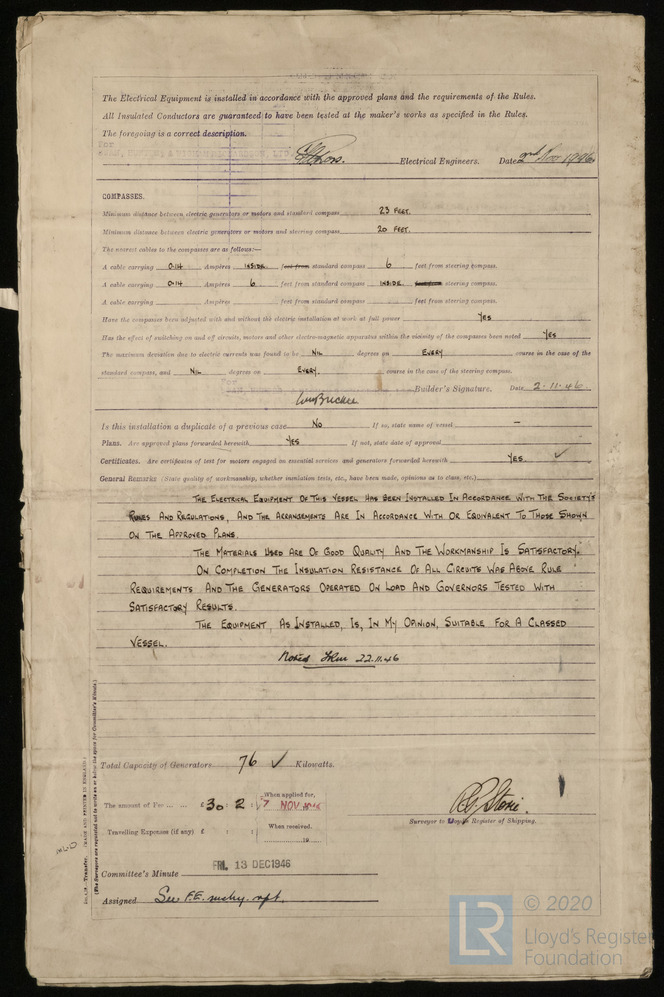 The Electrical Equipment is installed in accordance with the approved plans and the requirements of the Rules.
All Insulated Conductors are guaranteed to have been tested at the maker's works as specified in the Rules.
The foregoing is a correct description.
For
Electrical Engineers. Date 2nd Nov 1946
COMPASSES.
Minimum distance between electric generators or motors and standard compass 23 FEET.
Minimum distance between electric generators or motors and steering compass 20 FEET.
The nearest cables to the compasses are as follows:—
A cable carrying 0.14 Ampères INSIDE feet from standard compass 6 feet from steering compass.
A cable carrying 0.14 Ampères 6 feet from standard compass INSIDE feet from steering compass.
A cable carrying Ampères feet from standard compass feet from steering compass.
Have the compasses been adjusted with and without the electric installation at work at full power YES
Has the effect of switching on and off circuits, motors and other electromagnetic apparatus within the vicinity of the compasses been noted YES
The maximum deviation due to electric currents was found to be NIL degrees on EVERY course in the case of the
standard compass, and NIL degrees on EVERY course in the case of the steering compass.
For
Builder's Signature. Date 2.11.46
Is this installation a duplicate of a previous case No If so, state name of vessel —
Plans. Are approved plans forwarded herewith YES If not, state date of approval
Certificates. Are certificates of test for motors engaged on essential services and generators forwarded herewith YES ✓
General Remarks (State quality of workmanship, whether insulation tests, etc., have been made, opinions as to class, etc.)
THE ELECTRICAL EQUIPMENT OF THIS VESSEL HAS BEEN INSTALLED IN ACCORDANCE WITH THE SOCIETY'S
RULES AND REGULATIONS, AND THE ARRANGEMENTS ARE IN ACCORDANCE WITH OR EQUIVALENT TO THOSE SHOWN
ON THE APPROVED PLANS.
THE MATERIALS USED ARE OF GOOD QUALITY AND THE WORKMANSHIP IS SATISFACTORY.
ON COMPLETION THE INSULATION RESISTANCE OF ALL CIRCUITS WAS ABOVE RULE
REQUIREMENTS AND THE GENERATORS OPERATED ON LOAD AND GOVERNORS TESTED WITH
SATISFACTORY RESULTS.
THE EQUIPMENT, AS INSTALLED, IS, IN MY OPINION, SUITABLE FOR A CLASSED
VESSEL.
Noted 22.11.46
Total Capacity of Generators 76 ✓ Kilowatts.
The amount of Fee ... ... £ 30 : 2 : When applied for, 7 NOV 1946
Surveyor to Lloyd's Register of Shipping.
Travelling Expenses (if any) £ : : When received, 19
Committee's Minute FRI. 13 DEC 1946
Assigned See F.E. mchy. rpt.
Transfer. (MADE AND PRINTED IN ENGLAND)
(The Surveyors are requested not to write on or below the space for Committee's Minute.)
LR © 2020
Lloyd's Register
Foundation